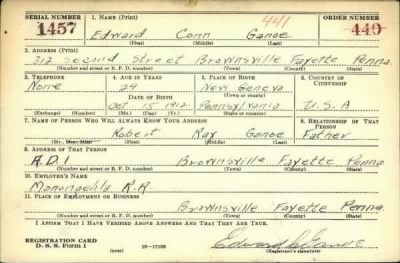 SERIAL NUMBER 1. NAME (Print) 441 ORDER NUMBER
1457 Edward Conn Ganoe 440
(First) (Middle) (Last)
2. ADDRESS (Print)
212 Second Street Brownsville Fayette Penna
(Number and street or R. F. D. number) (Town) (County) (State)
3. TELEPHONE 4. AGE IN YEARS 5. PLACE OF BIRTH 6. COUNTRY OF CITIZENSHIP
None 29 New Geneva
DATE OF BIRTH (Town or county)
Oct 15 1912 Pennsylvania U.S.A
(Exchange) (Number) (Mo.) (Day) (Yr.) (State or country)
7. NAME OF PERSON WHO WILL ALWAYS KNOW YOUR ADDRESS 8. RELATIONSHIP OF THAT PERSON
Robert Ray Ganoe Father
(Mr., Mrs., Miss) (First) (Middle) (Last)
9. ADDRESS OF THAT PERSON
R.D. 1 Brownsville Fayette Penna
(Number and street or R. F. D. number) (Town) (County) (State)
10. EMPLOYER'S NAME
Monongahela R.R.
11. PLACE OF EMPLOYMENT OR BUSINESS
Brownsville Fayette Penna
(Number and street or R. F. D. number) (Town) (County) (State)
I AFFIRM THAT I HAVE VERIFIED ABOVE ANSWERS AND THAT THEY ARE TRUE.
REGISTRATION CARD
D. S. S. Form 1 (over) 16—17105 Edward C. Ganoe
(Registrant's signature)